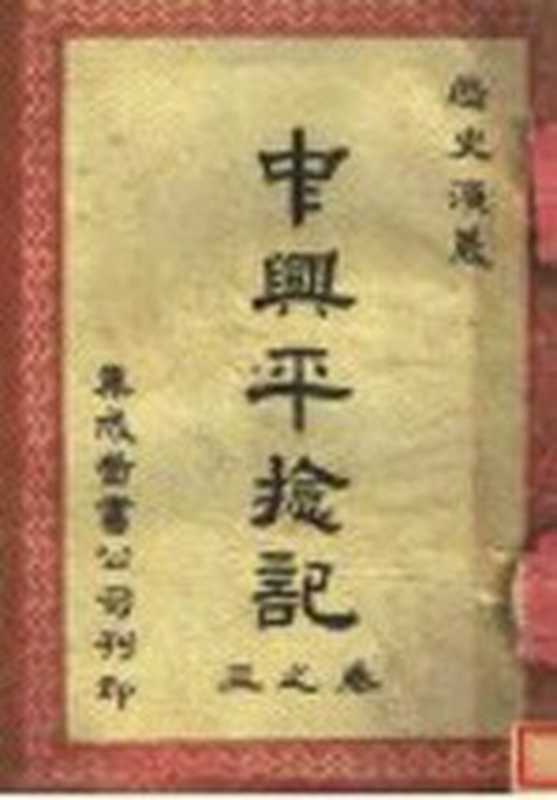 歷史演義
中興平捻記
卷之三
集成圖書公司刊印